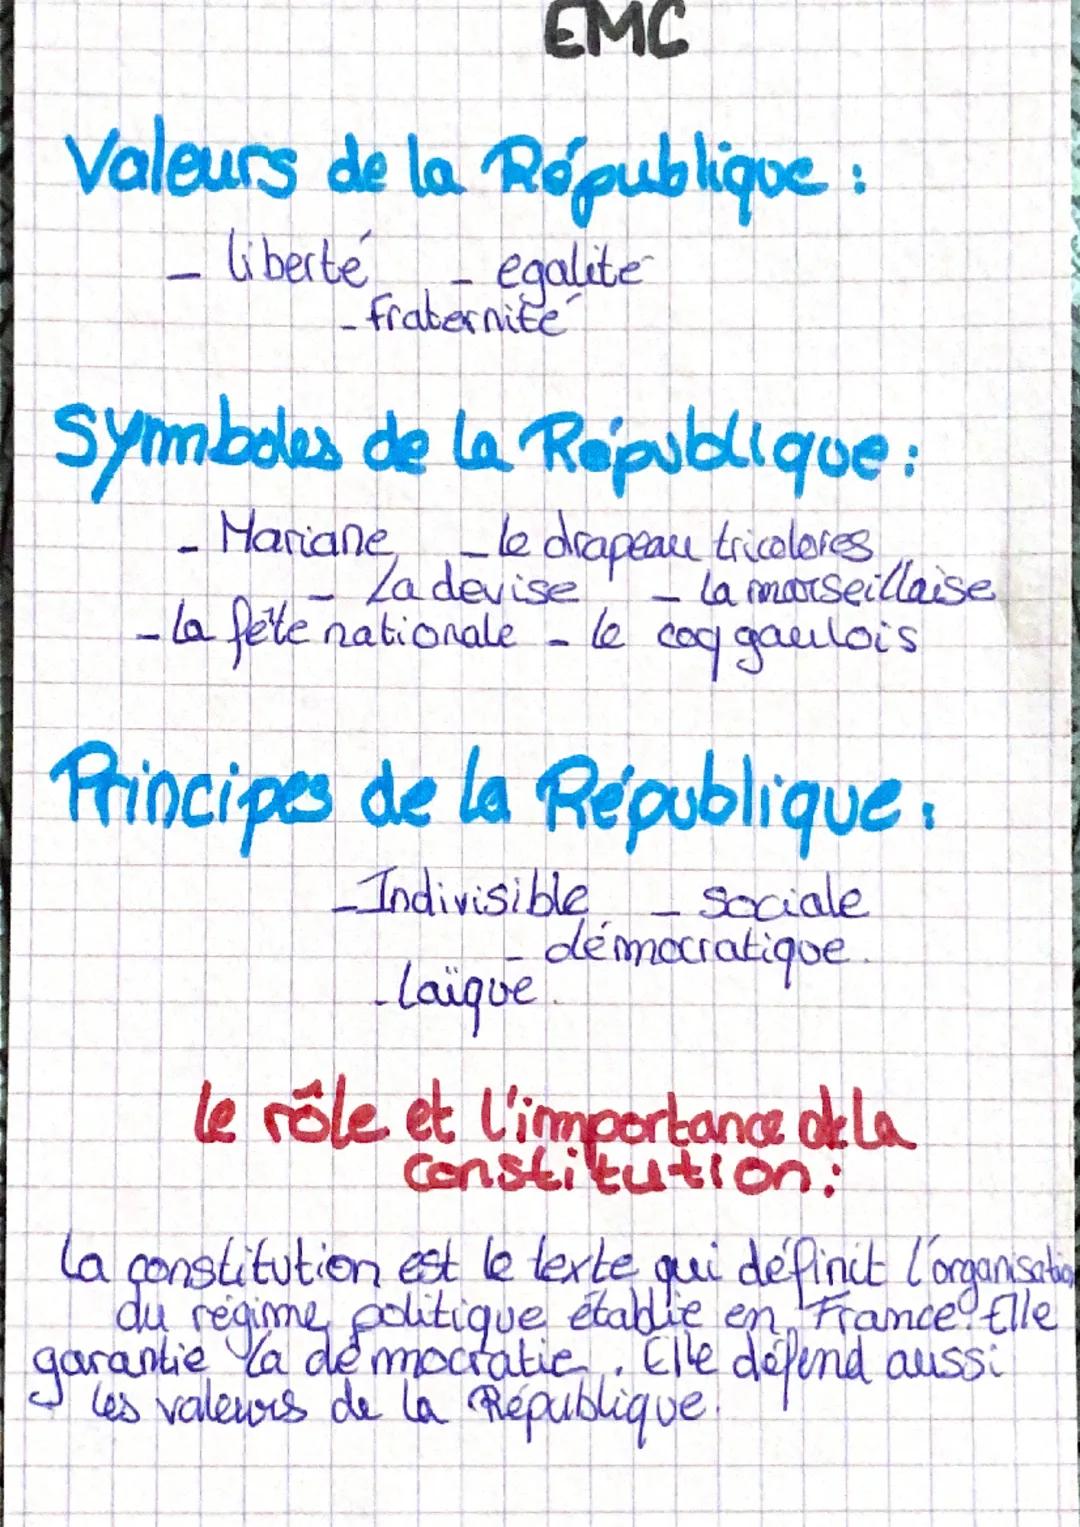 EMC
Valeurs de la République :
- liberté - egalité
- fraternité
Symboles de la République :
- Mariane - le drapeau tricolores
- La devise - la marseillaise
- la fête nationale - le coq gaulois
Principes de la République :
- Indivisible - sociale
- démocratique.
- laïque.
le rôle et l'importance de la
constitution :
la constitution est le texte qui définit l'organisation
du régime politique établie en France. Elle
garantie la démocratie. Elle défend aussi
les valeurs de la République.